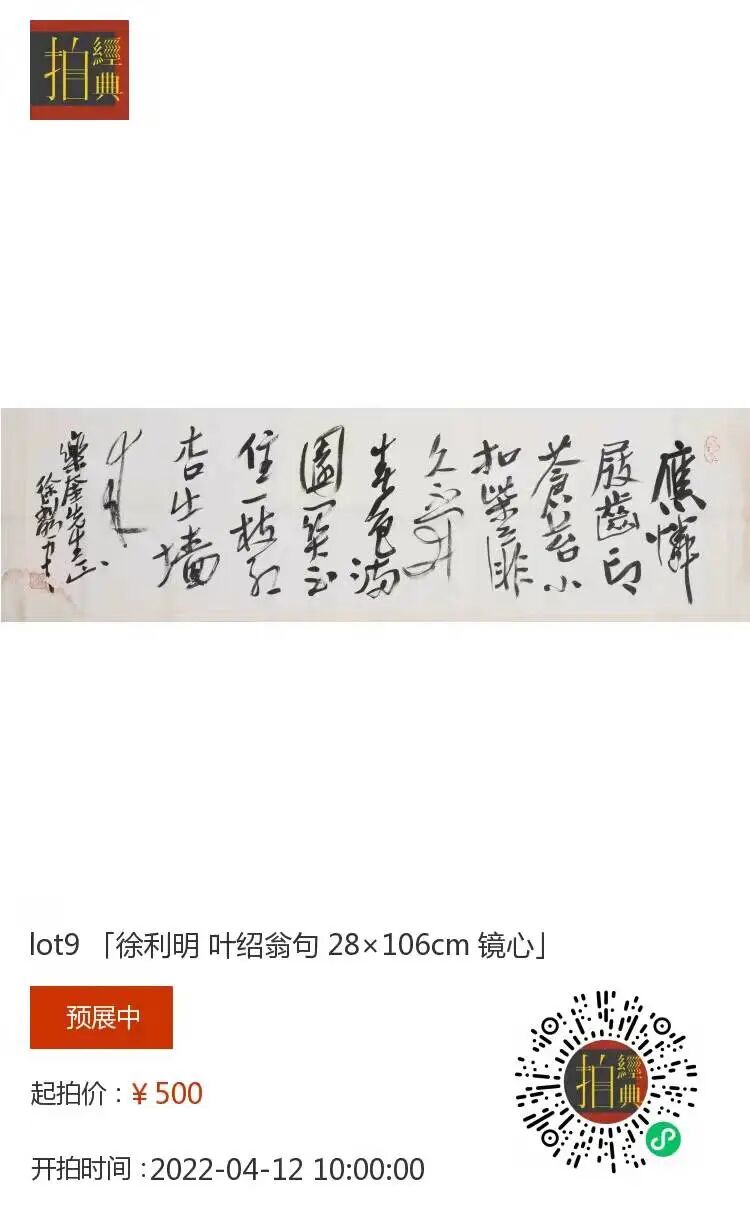 經典拍
應憐
屐齒印
蒼苔小
扣柴扉
久不開
春色滿
園關不
住一枝紅
杏出墙
来
先生正
徐利明
lot9 「徐利明 叶绍翁句 28×106cm 镜心」
预展中
起拍价：¥ 500
开拍时间：2022-04-12 10:00:00
經典拍